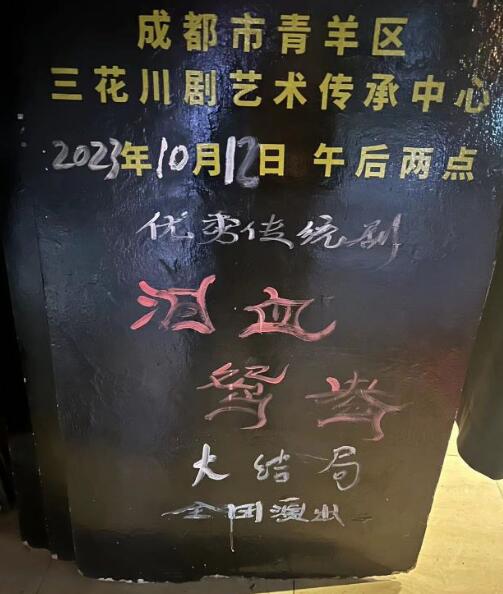 成都市青羊区
三花川剧艺术传承中心
2023年10月12日 午后两点
优秀传统剧
泪血
鸳鸯
大结局
全团演出